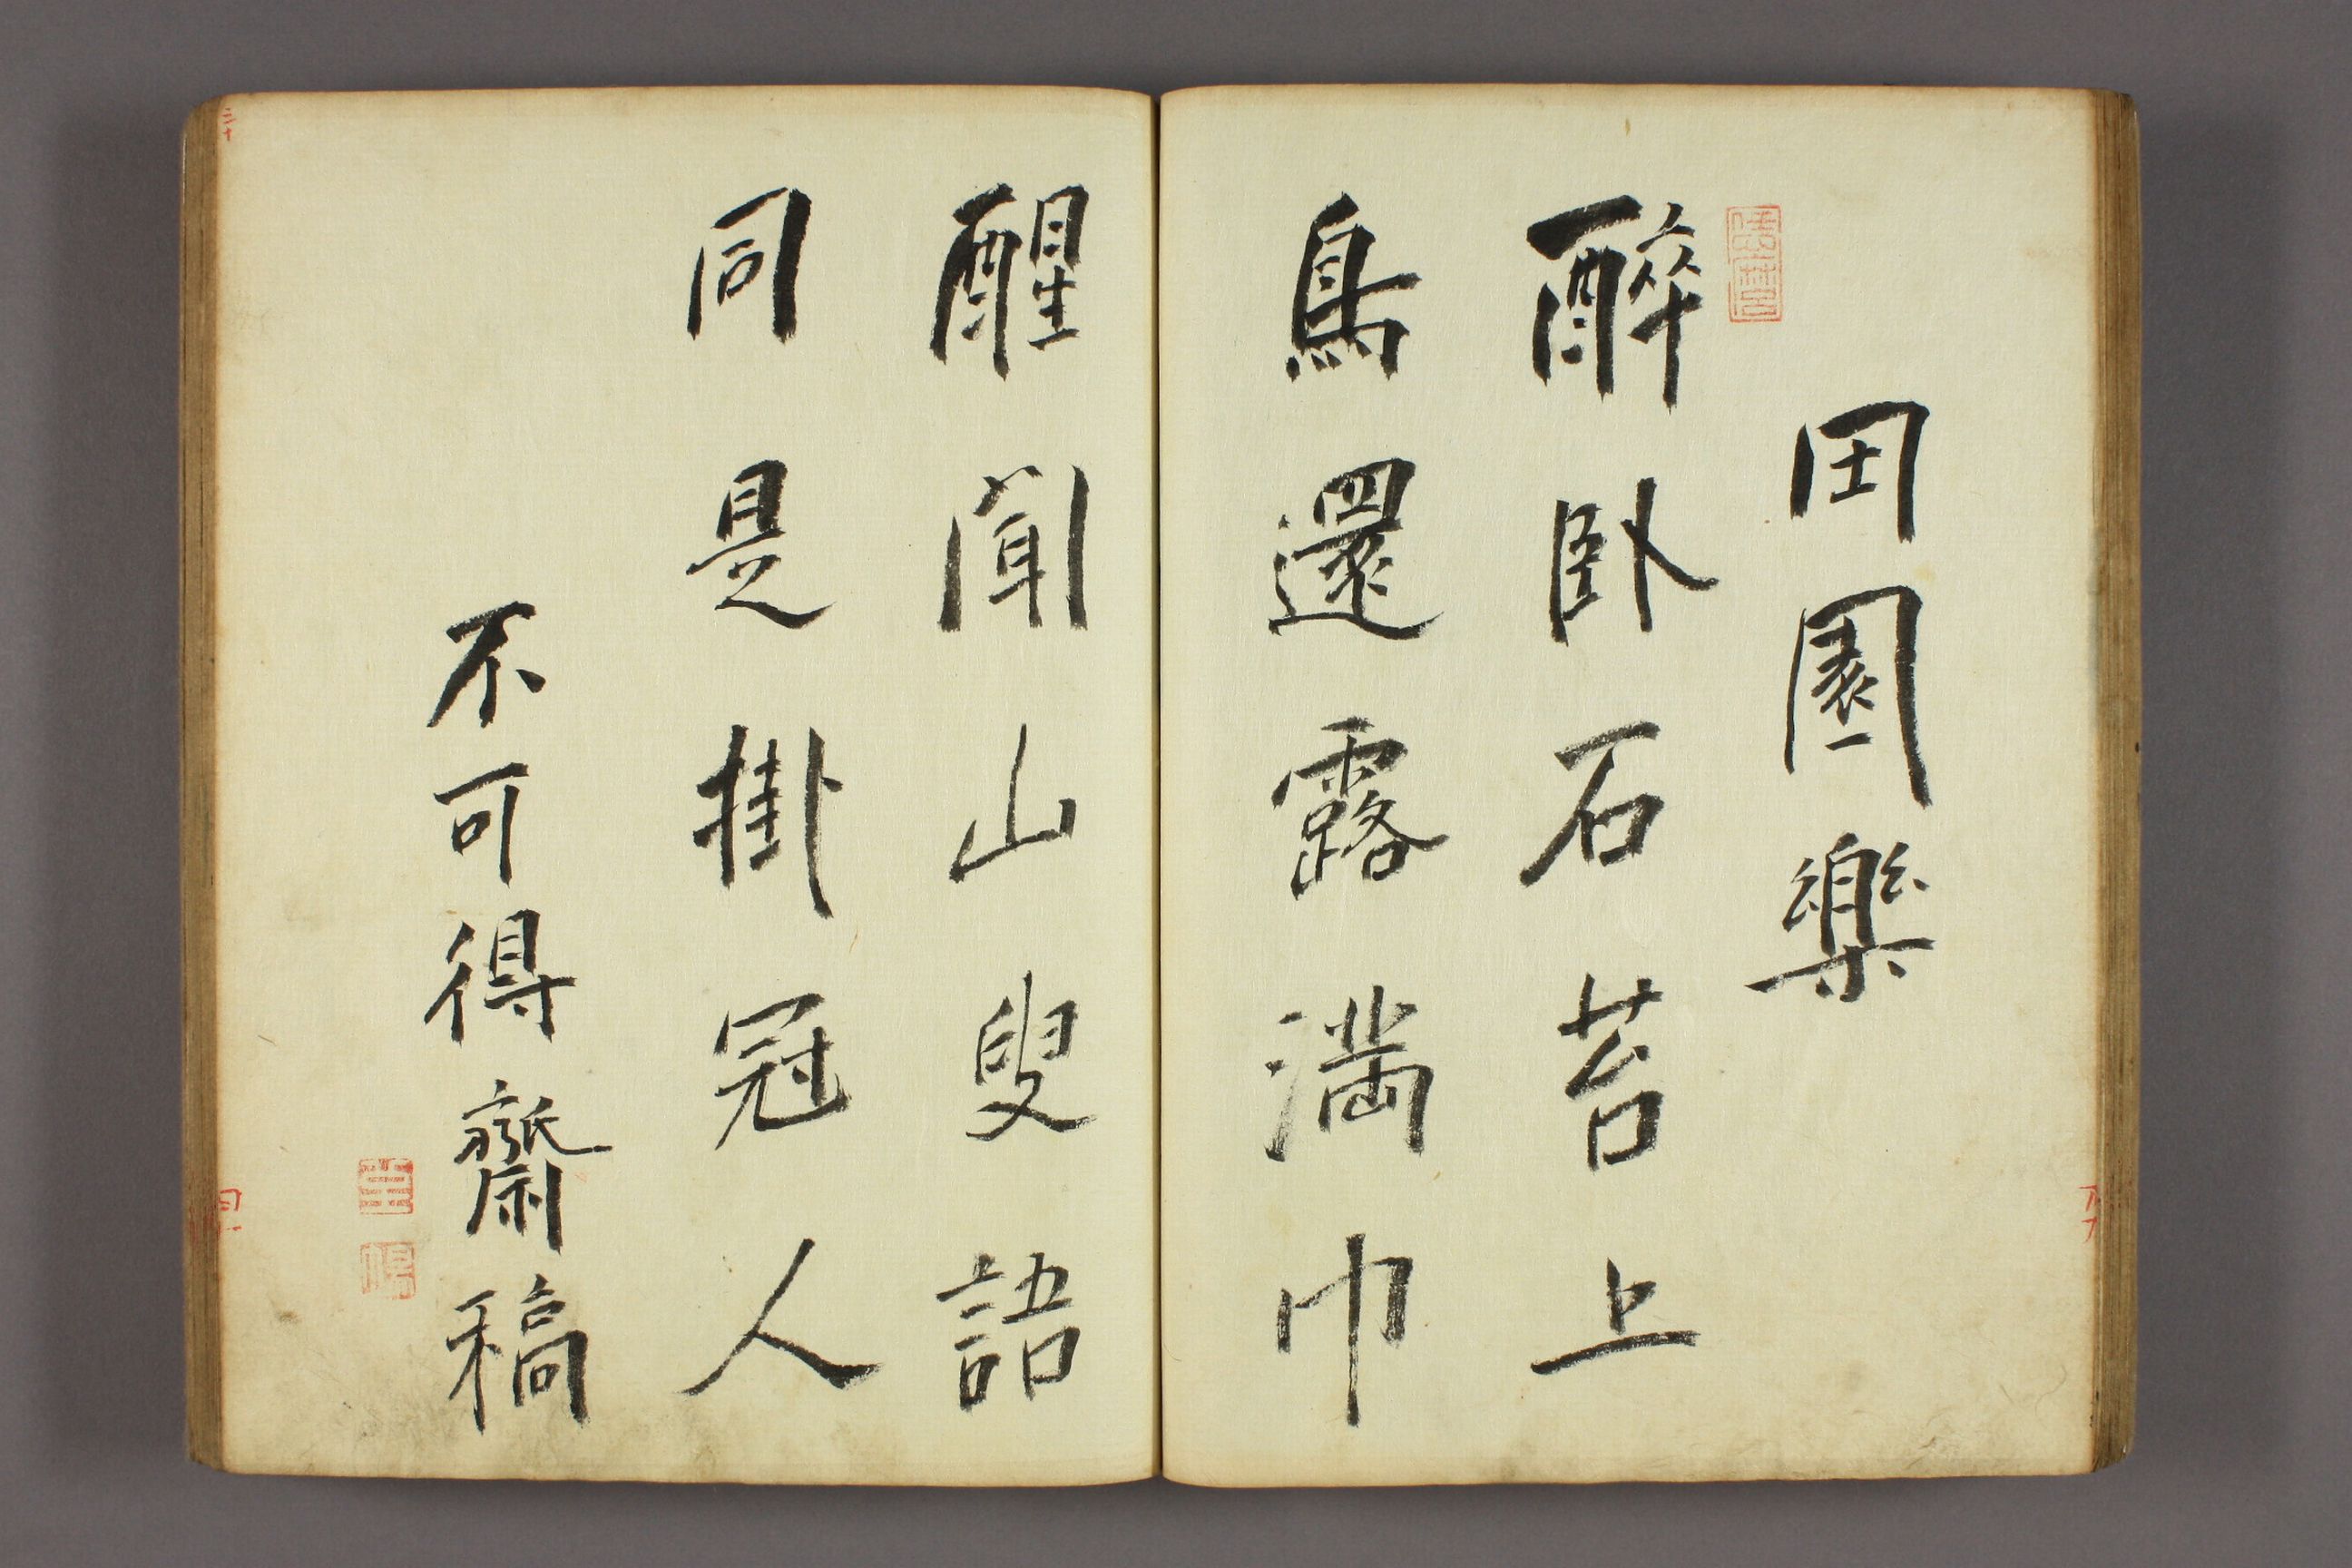 田園樂
醉臥石苔上
鳥還露滿巾
醒聞山叟語
同是掛冠人
不可得齋稿